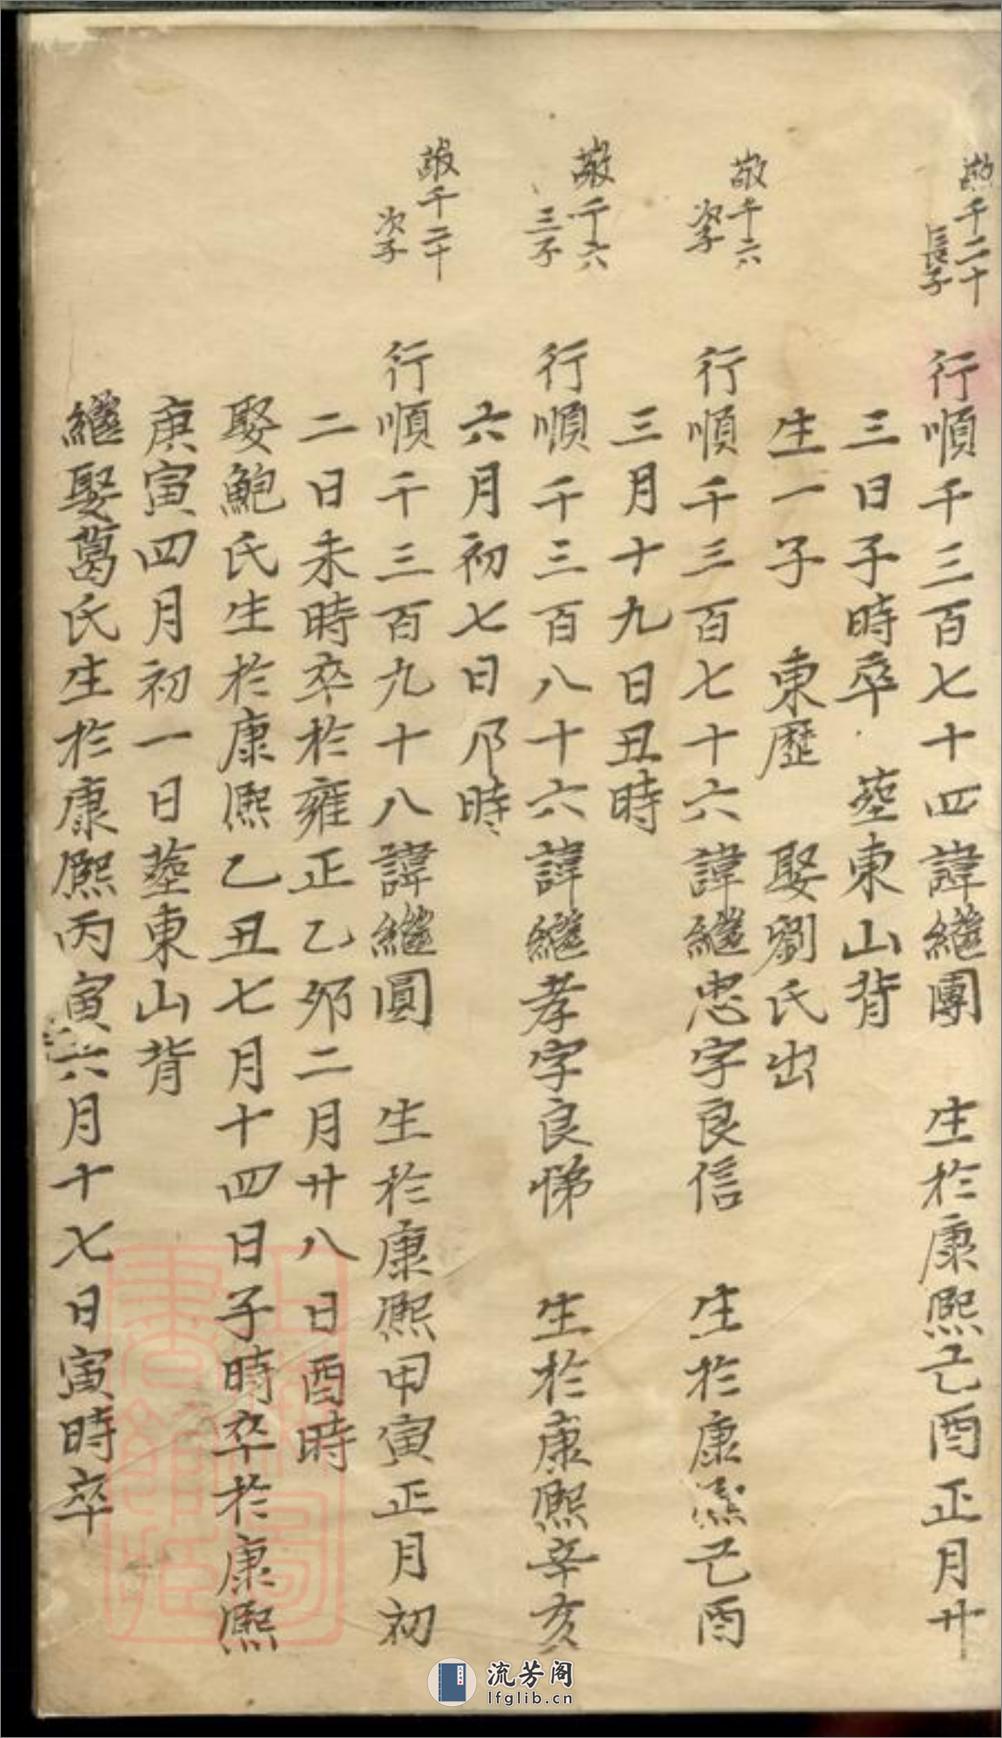 敬千二十
長子
行順千三百七十四諱繼團　生於康熙己酉正月廿
三日子時卒　塟東山背
生一子　東歷　娶劉氏出
敬千六
次子
行順千三百七十六諱繼忠字良信　生於康熙己酉
三月十九日丑時
敬千六
三子
行順千三百八十六諱繼孝字良悌　生於康熙辛亥
六月初七日卯時
敬千二十
次子
行順千三百九十八諱繼圓　生於康熙甲寅正月初
二日未時卒於雍正乙卯二月廿八日酉時
娶鮑氏生於康熙乙丑七月十四日子時卒於康熙
庚寅四月初一日塟東山背
繼娶葛氏生於康熙丙寅六月十七日寅時卒
流芳阁
lfglib.cn